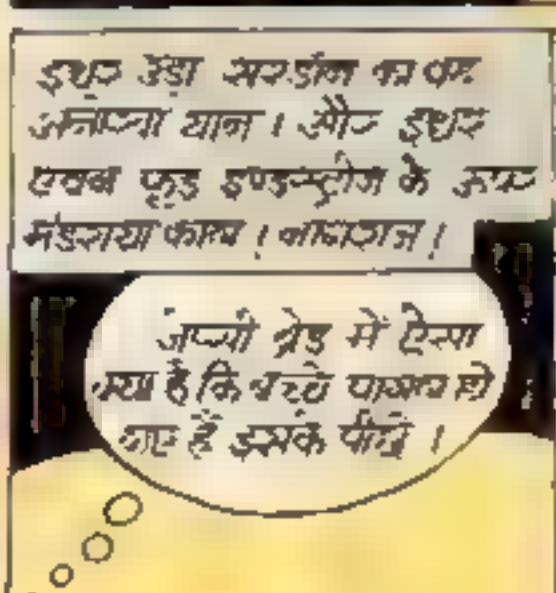 इधर उड़ा सरडोन का वह
अनोप्या यान । और इधर
पवन फूड इण्डस्ट्रीज के ऊपर
मंडराया काल । नागराज ।
जप्पी ब्रेड में ऐसा
क्या है कि बच्चे पागल हो
गए हैं इसके पीछे ।